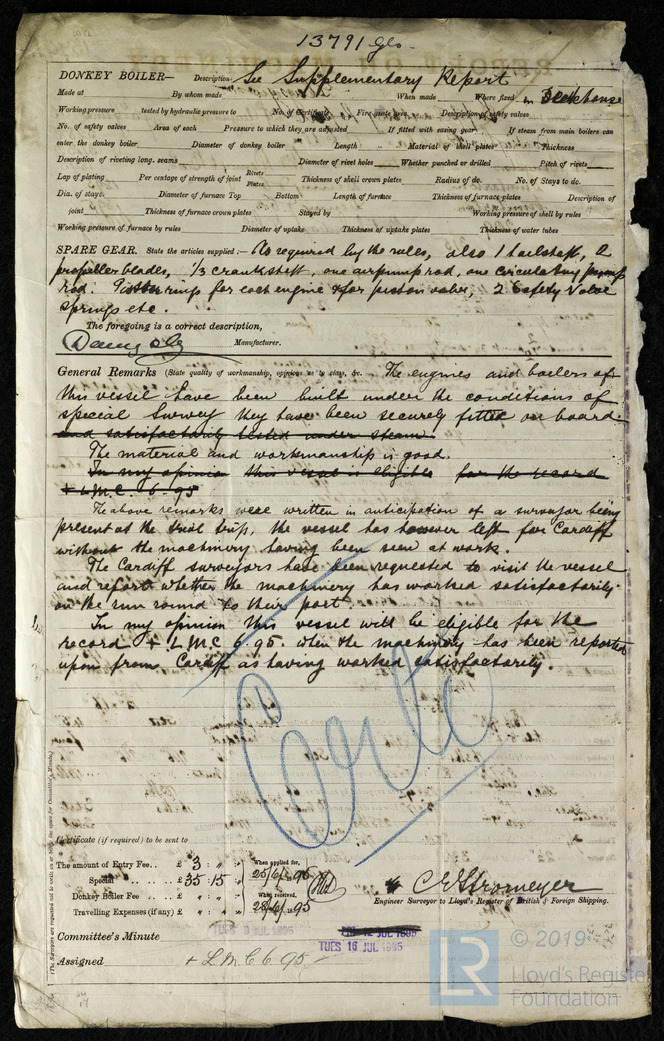 13791 Gls.
DONKEY BOILER— Description See Supplementary Report
Made at By whom made When made Where fixed in Deckhouse
Working pressure tested by hydraulic pressure to No. of Certificate Fire grate area Description of safety valves
No. of safety valves Area of each Pressure to which they are adjusted If fitted with easing gear If steam from main boilers can
enter the donkey boiler Diameter of donkey boiler Length Material of shell plates Thickness
Description of riveting long. seams Diameter of rivet holes Whether punched or drilled Pitch of rivets
Lap of plating Per centage of strength of joint Rivets Plates Thickness of shell crown plates Radius of do. No. of Stays to do.
Dia. of stays. Diameter of furnace Top Bottom Length of furnace Thickness of furnace plates Description of
joint Thickness of furnace crown plates Stayed by Working pressure of shell by rules
Working pressure of furnace by rules Diameter of uptake Thickness of uptake plates Thickness of water tubes
SPARE GEAR. State the articles supplied:— As required by the rules, also 1 tailshaft, 2
propeller blades, 1/3 crankshaft, one airpump rod, one circulating pump
rod. Piston rings for each engine & for piston valve, 2 Safety Valve
springs etc.
The foregoing is a correct description,
Manufacturer.
General Remarks (State quality of workmanship, opinions as to class, &c. The engines and boilers of
this vessel have been built under the conditions of
special Survey they have been securely fitted on board
and satisfactorily tested under steam.
The material and workmanship is good.
In my opinion this vessel is eligible for the record
+ LMC. 6.95
The above remarks were written in anticipation of a surveyor being
present at the trial trip, the vessel has however left for Cardiff
without the machinery having been seen at work.
The Cardiff surveyors have been requested to visit the vessel
and report whether the machinery has worked satisfactorily
on the run round to their port.
In my opinion this vessel will be eligible for the
record + L.M.C 6.95. when the machinery has been reported
upon from Cardiff as having worked satisfactorily.
Certificate (if required) to be sent to
The amount of Entry Fee.. £ 3 : " : "
When applied for,
Special .. .. .. £ 35 : 15 : "
25/6/ 95
Donkey Boiler Fee .. .. £ " : " : "
When received,
Travelling Expenses (if any) £ " : " : "
28/6/1895
C E Stromeyer
Engineer Surveyor to Lloyd's Register of British & Foreign Shipping.
Committee's Minute
TUES 16 JUL 1895
Assigned + L M C 6.95
(The Surveyors are requested not to write on or below the space for Committee's Minute.)
LR
© 2019
Lloyd's Register
Foundation